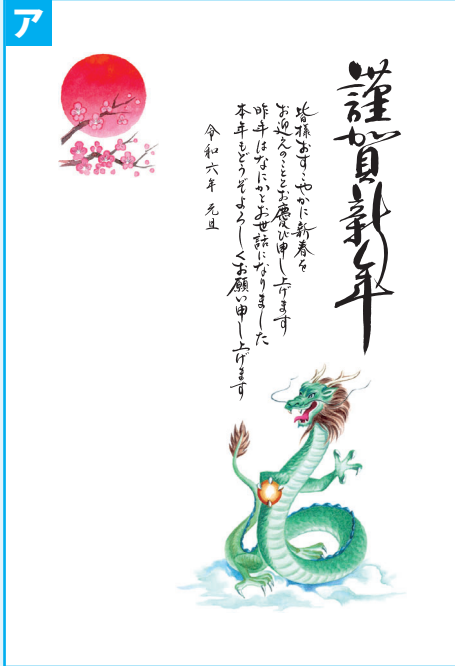 ア
謹賀新年
皆様おすこやかに新春を
お迎えのこととお慶び申し上げます
昨年はなにかとお世話になりました
本年もどうぞよろしくお願い申し上げます
令和六年 元旦